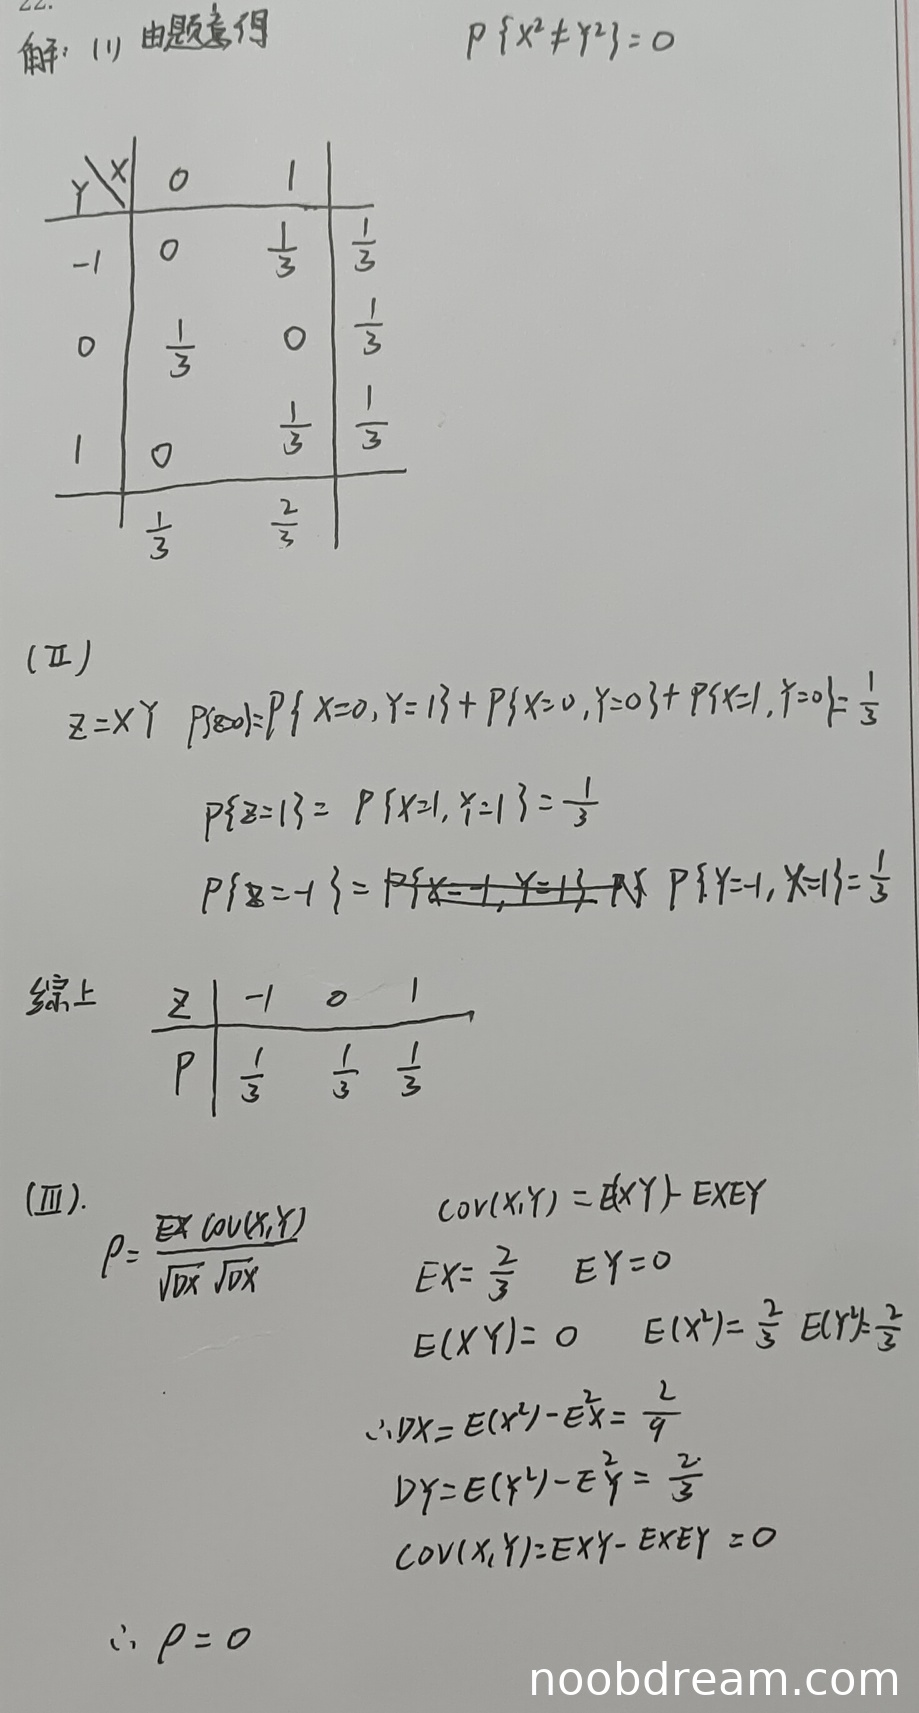 22.
解: (1) 由题意得 P{X²≠Y²}=0
Y\X 0 1
-1 0 1/3 1/3
0 1/3 0 1/3
1 0 1/3 1/3
1/3 2/3
(Ⅱ)
Z=XY P{Z=0}=P{X=0,Y=1}+P{X=0,Y=0}+P{X=1,Y=0}=1/3
P{Z=1}= P{X=1,Y=1}=1/3
P{Z=-1}= P{X=-1,Y=1} P{Y=-1,X=1}=1/3
综上 Z -1 0 1
P 1/3 1/3 1/3
(Ⅲ).
COV(X,Y)=E(XY)-EXEY
ρ= EX COV(X,Y)/√DX √DX
EX=2/3 EY=0
E(XY)=0 E(X²)=2/3 E(Y²)=2/3
∴DX=E(X²)-E²X=2/9
DY=E(Y²)-E²Y=2/3
COV(X,Y)=EXY-EXEY=0
∴ ρ=0
noobdream.com